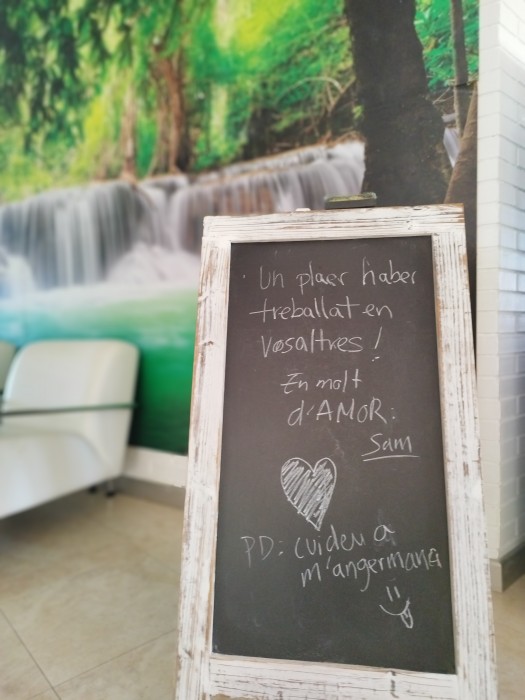 Un plaer haber
treballat en
vosaltres!
En molt
d'AMOR:
Sam
PD: cuideu a
m'angermana